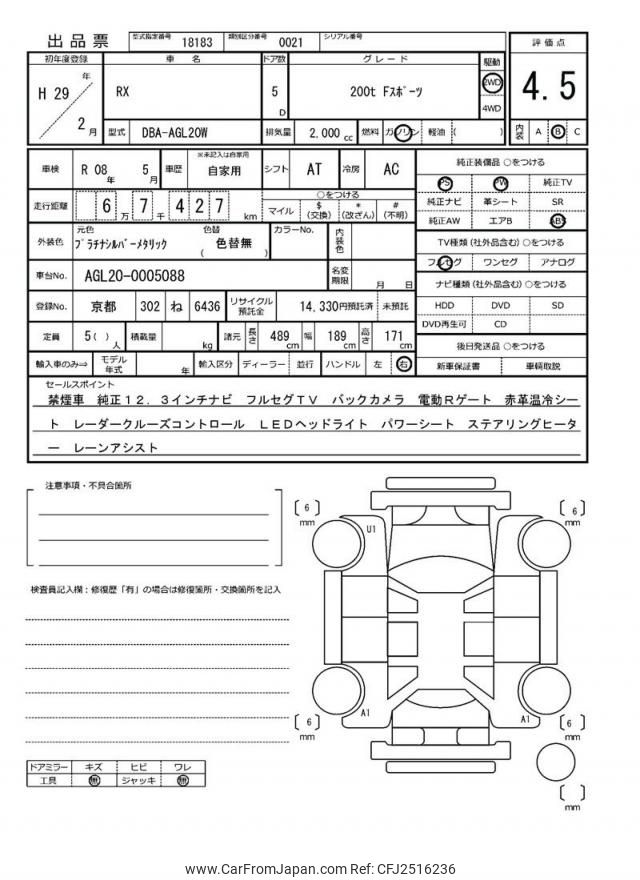 出品票 型式指定番号 18183 類別区分番号 0021 シリアル番号
初年度登録 車名 ドア数 グレード 駆動 評価点
H 29 年 2 月 RX 5 D 200t Fスポーツ 2WD 4WD 4.5
型式 DBA-AGL20W 排気量 2,000 cc 燃料 ガソリン 軽油 ( ) 内装 A B C
車検 R 08 年 5 月 車歴 ※未記入は自家用 自家用 シフト AT 冷房 AC
純正装備品 ○をつける
PS PW 純正TV
純正ナビ 革シート SR
純正AW エアB ABS
走行距離 6 万 7 千 4 2 7 km ○をつける マイル $ (交換) * (改ざん) # (不明)
TV種類(社外品含む) ○をつける
フルセグ ワンセグ アナログ
外装色 元色 プラチナシルバーメタリック 色替 ( 色替無 ) カラーNo. 内装色
ナビ種類(社外品含む) ○をつける
HDD DVD SD
DVD再生可 CD
車台No. AGL20-0005088 名変期限 月 日
登録No. 京都 302 ね 6436 リサイクル預託金 14,330円預託済 未預託
定員 5 ( ) 人 積載量 kg 諸元 長さ 489 cm 幅 189 cm 高さ 171 cm
後日発送品 ○をつける
新車保証書 車輌取説
輸入車のみ⇒ モデル年式 年 輸入区分 ディーラー 並行 ハンドル 左 右
セールスポイント
禁煙車 純正12.3インチナビ フルセグTV バックカメラ 電動Rゲート 赤革温冷シー
ト レーダークルーズコントロール LEDヘッドライト パワーシート ステアリングヒータ
ー レーンアシスト
注意事項・不具合箇所
検査員記入欄:修復歴「有」の場合は修復箇所・交換箇所を記入
ドアミラー キズ ヒビ ワレ
工具 無 ジャッキ 無
[ 6 ] mm
[ 6 ] mm
U1
A1
A1
[ 6 ] mm
[ 6 ] mm
[ ] mm
www.CarFromJapan.com Ref: CFJ2516236